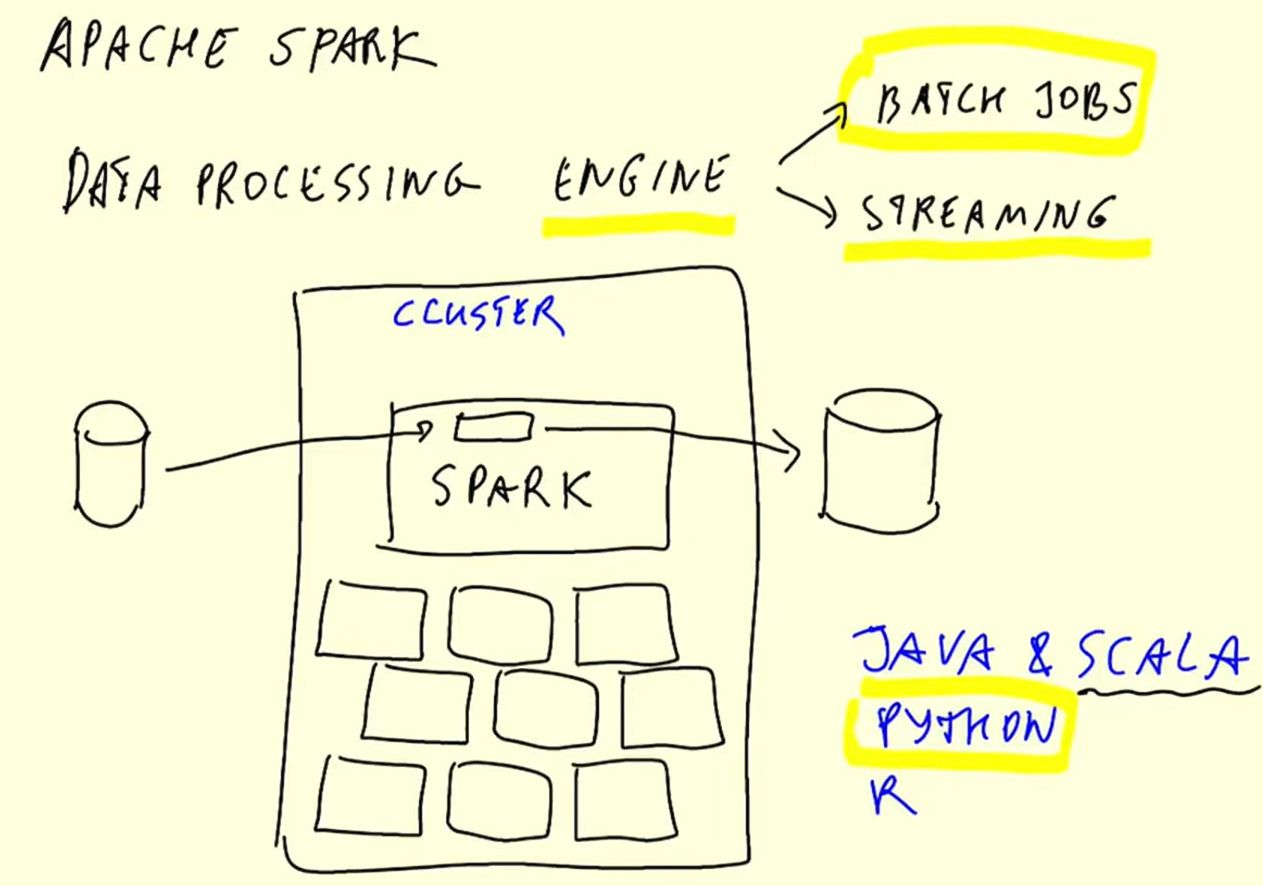 APACHE SPARK
DATA PROCESSING ENGINE
BATCH JOBS
STREAMING
CLUSTER
SPARK
JAVA & SCALA
PYTHON
R